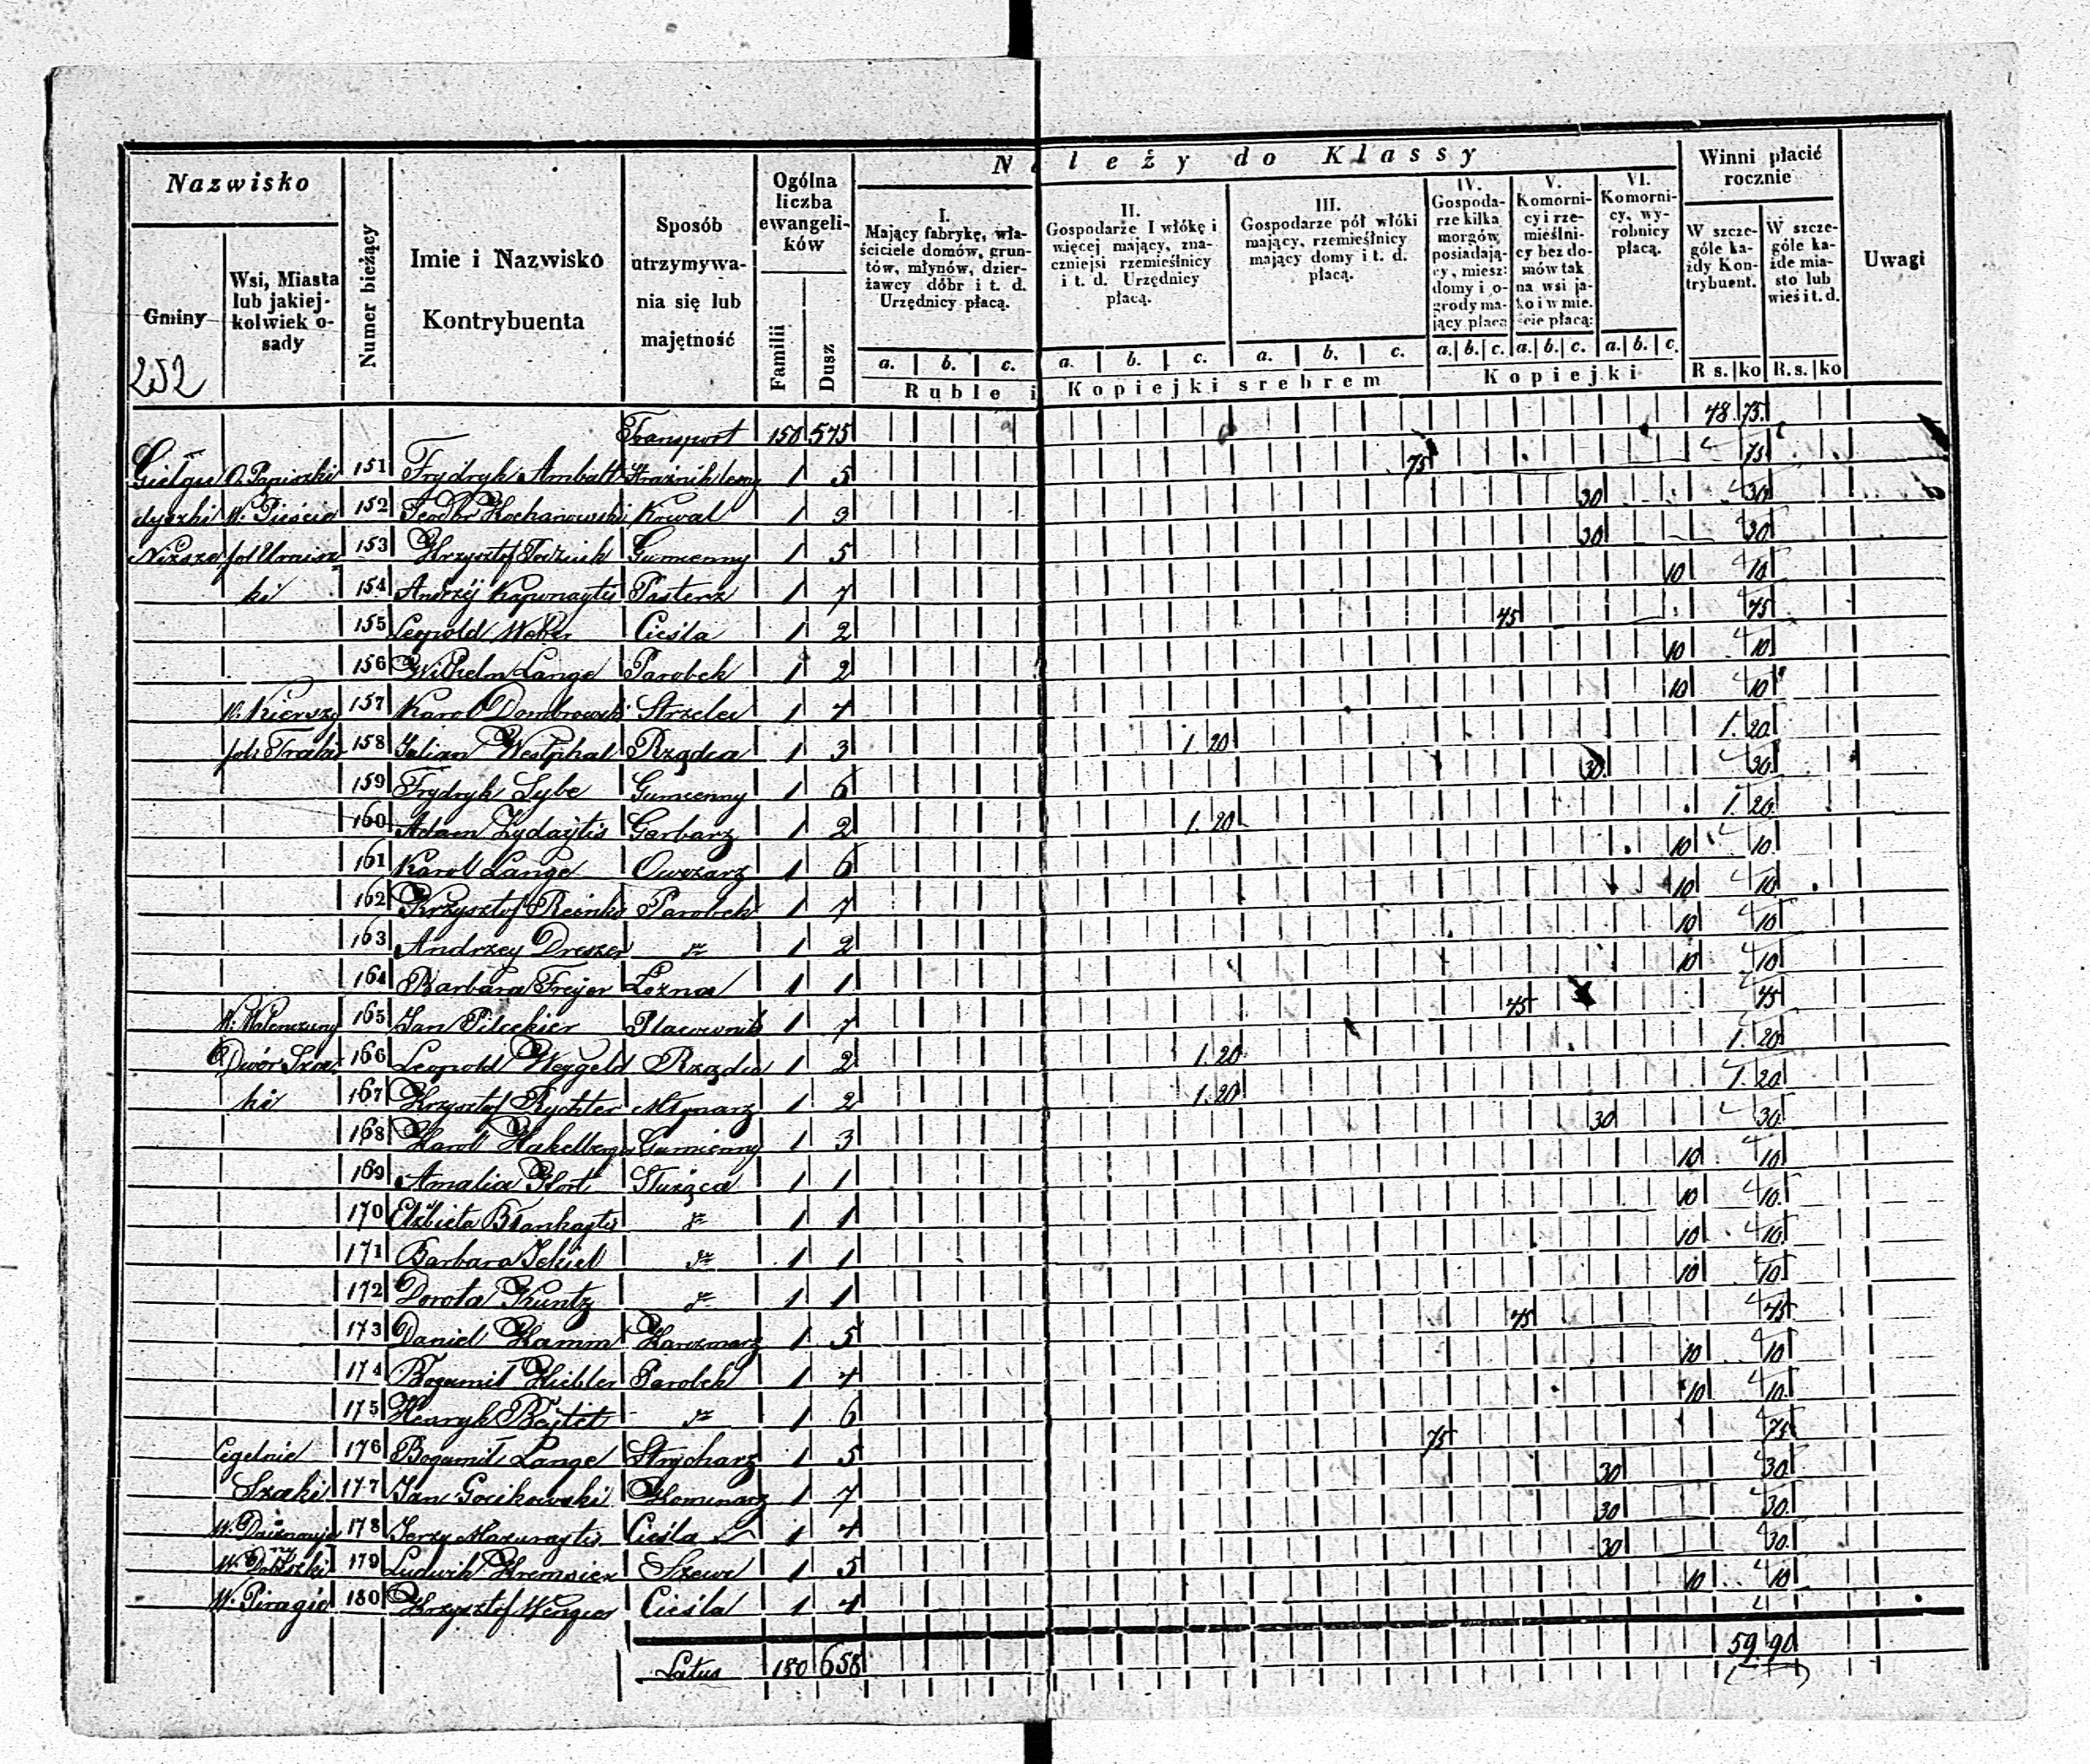 Nazwisko
Gminy
252
Wsi, Miasta lub jakiej-kolwiek o-sady
Numer bieżący
Imie i Nazwisko Kontrybuenta
Sposób utrzymywa-nia się lub majętność
Ogólna liczba ewangeli-ków
Familii
Dusz
Należy do Klassy
I. Mający fabrykę, wła-ściciele domów, grun-tów, młynów, dzier-żawcy dóbr i t. d. Urzędnicy płacą.
II. Gospodarze I włókę i więcej mający, zna-czniejsi rzemieślnicy i t. d. Urzędnicy płacą.
III. Gospodarze pół włóki mający, rzemieślnicy mający domy i t. d. płacą.
IV. Gospoda-rze kilka morgów, posiadają-cy, miesz: domy i o-grody ma-jący płacą
V. Komorni-cy i rze-mieślni-cy bez do-mów tak na wsi ja-ko i w mie-ście płacą:
VI. Komorni-cy, wy-robnicy płacą.
Winni płacić rocznie
W szcze-góle ka-żdy Kon-trybuent.
W szcze-góle ka-żde mia-sto lub wieś i t. d.
Uwagi
a. b. c. a. b. c. a. b. c. a. b. c. a. b. c. a. b. c.
Ruble i Kopiejki srebrem
Kopiejki
R s. ko R.s. ko
Transport 150 575 48. 75.
Giełgu O. Papiszki 151 Frydryk Ambalt Strażnik leśny 1 5 75 75
dyszki W. 152 Teodor Kochanowski Kowal 1 3 30 30
Niższe fol 153 Krzysztof Gumienny 1 5 30 30
ki 154 Andrzéj Pasterz 1 7 10 10
155 Leopold Weber Cieśla 1 2 45 45
156 Wilhelm Lange Parobek 1 2 10 10
157 Karol Dombrowski Strzelec 1 4 10 10
158 Julian Westphal Rządca 1 3 1. 20 1. 20
159 Frydryk Sybe Gumienny 1 6 30 30
160 Adam Garbarz 1 2 1. 20 1. 20
161 Karol Lange Owczarz 1 6 10 10
162 Krzysztof Reinke Parobek 1 7 10 10
163 Andrzey Dreszer dto 1 2 10 10
164 Barbara Freyer Lózna 1 1 10 10
165 Jan 1 7 45 45
Dwór Sza- 166 Leopold Weygeld Rządca 1 2 1. 20 1. 20
ki 167 Krzysztof Rychter Młynarz 1 2 1. 20 1. 20
168 Karol Hakelberg Gumienny 1 3 30 30
169 Amalia Służąca 1 1 10 10
170 Elżbieta dto 1 1 10 10
171 Barbara Jekiel dto 1 1 10 10
172 Dorota Kuntz dto 1 1 10 10
173 Daniel Hamm Karczmarz 1 5 45 45
174 Bogumił Parobek 1 4 10 10
175 Henryk dto 1 6 10 10
Cegelnie 176 Bogumił Lange Strycharz 1 5 75 75
Szaki 177 Jan Gocikowski Kominarz 1 7 30 30
W. 178 Jerzy Mazuraytis Cieśla 1 4 30 30
W. 179 Ludwik Szewc 1 5 30 30
W. Piragie 180 Krzysztof Cieśla 1 4 10 10
Latus 180 658 59. 90